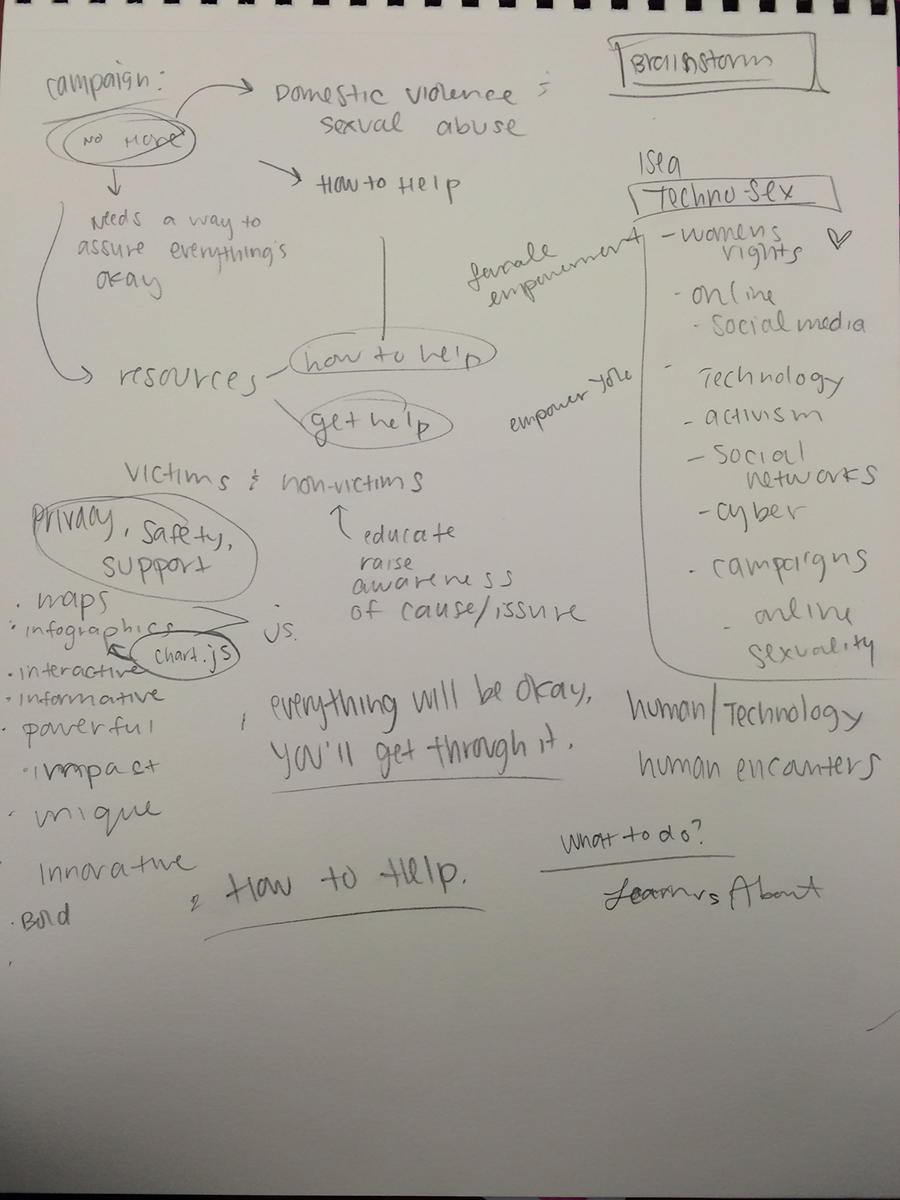 Brainstorm
campaign:
NO MORE
Domestic violence &
sexual abuse
How to Help
Needs a way to
assure everything's
okay
resources
how to help
get help
victims & non-victims
educate
raise
awareness
of cause/issure
Privacy, Safety,
support
. maps
. infographics
JS.
chart.js
. interactive
. informative
. powerful
. impact
. unique
Innovative
. Bold
1 everything will be okay,
you'll get through it.
2 How to Help.
Isea
Techno-Sex
female
empowerment
empower
- womens
rights
- online
- social media
- Technology
- activism
- social
networks
- cyber
- campaigns
- online
sexuality
human/Technology
human encounters
What to do?
About